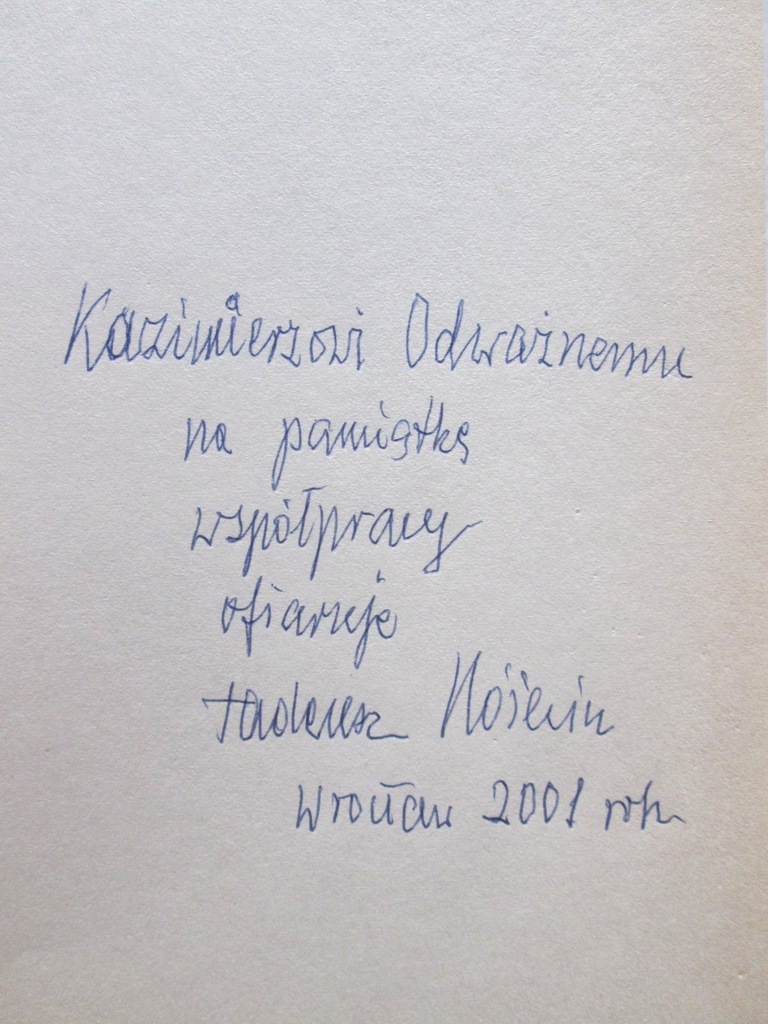 Kazimierzowi Odważnemu
na pamiątkę
współpracy
ofiaruje
Tadeusz
Wrocław 2001 rok